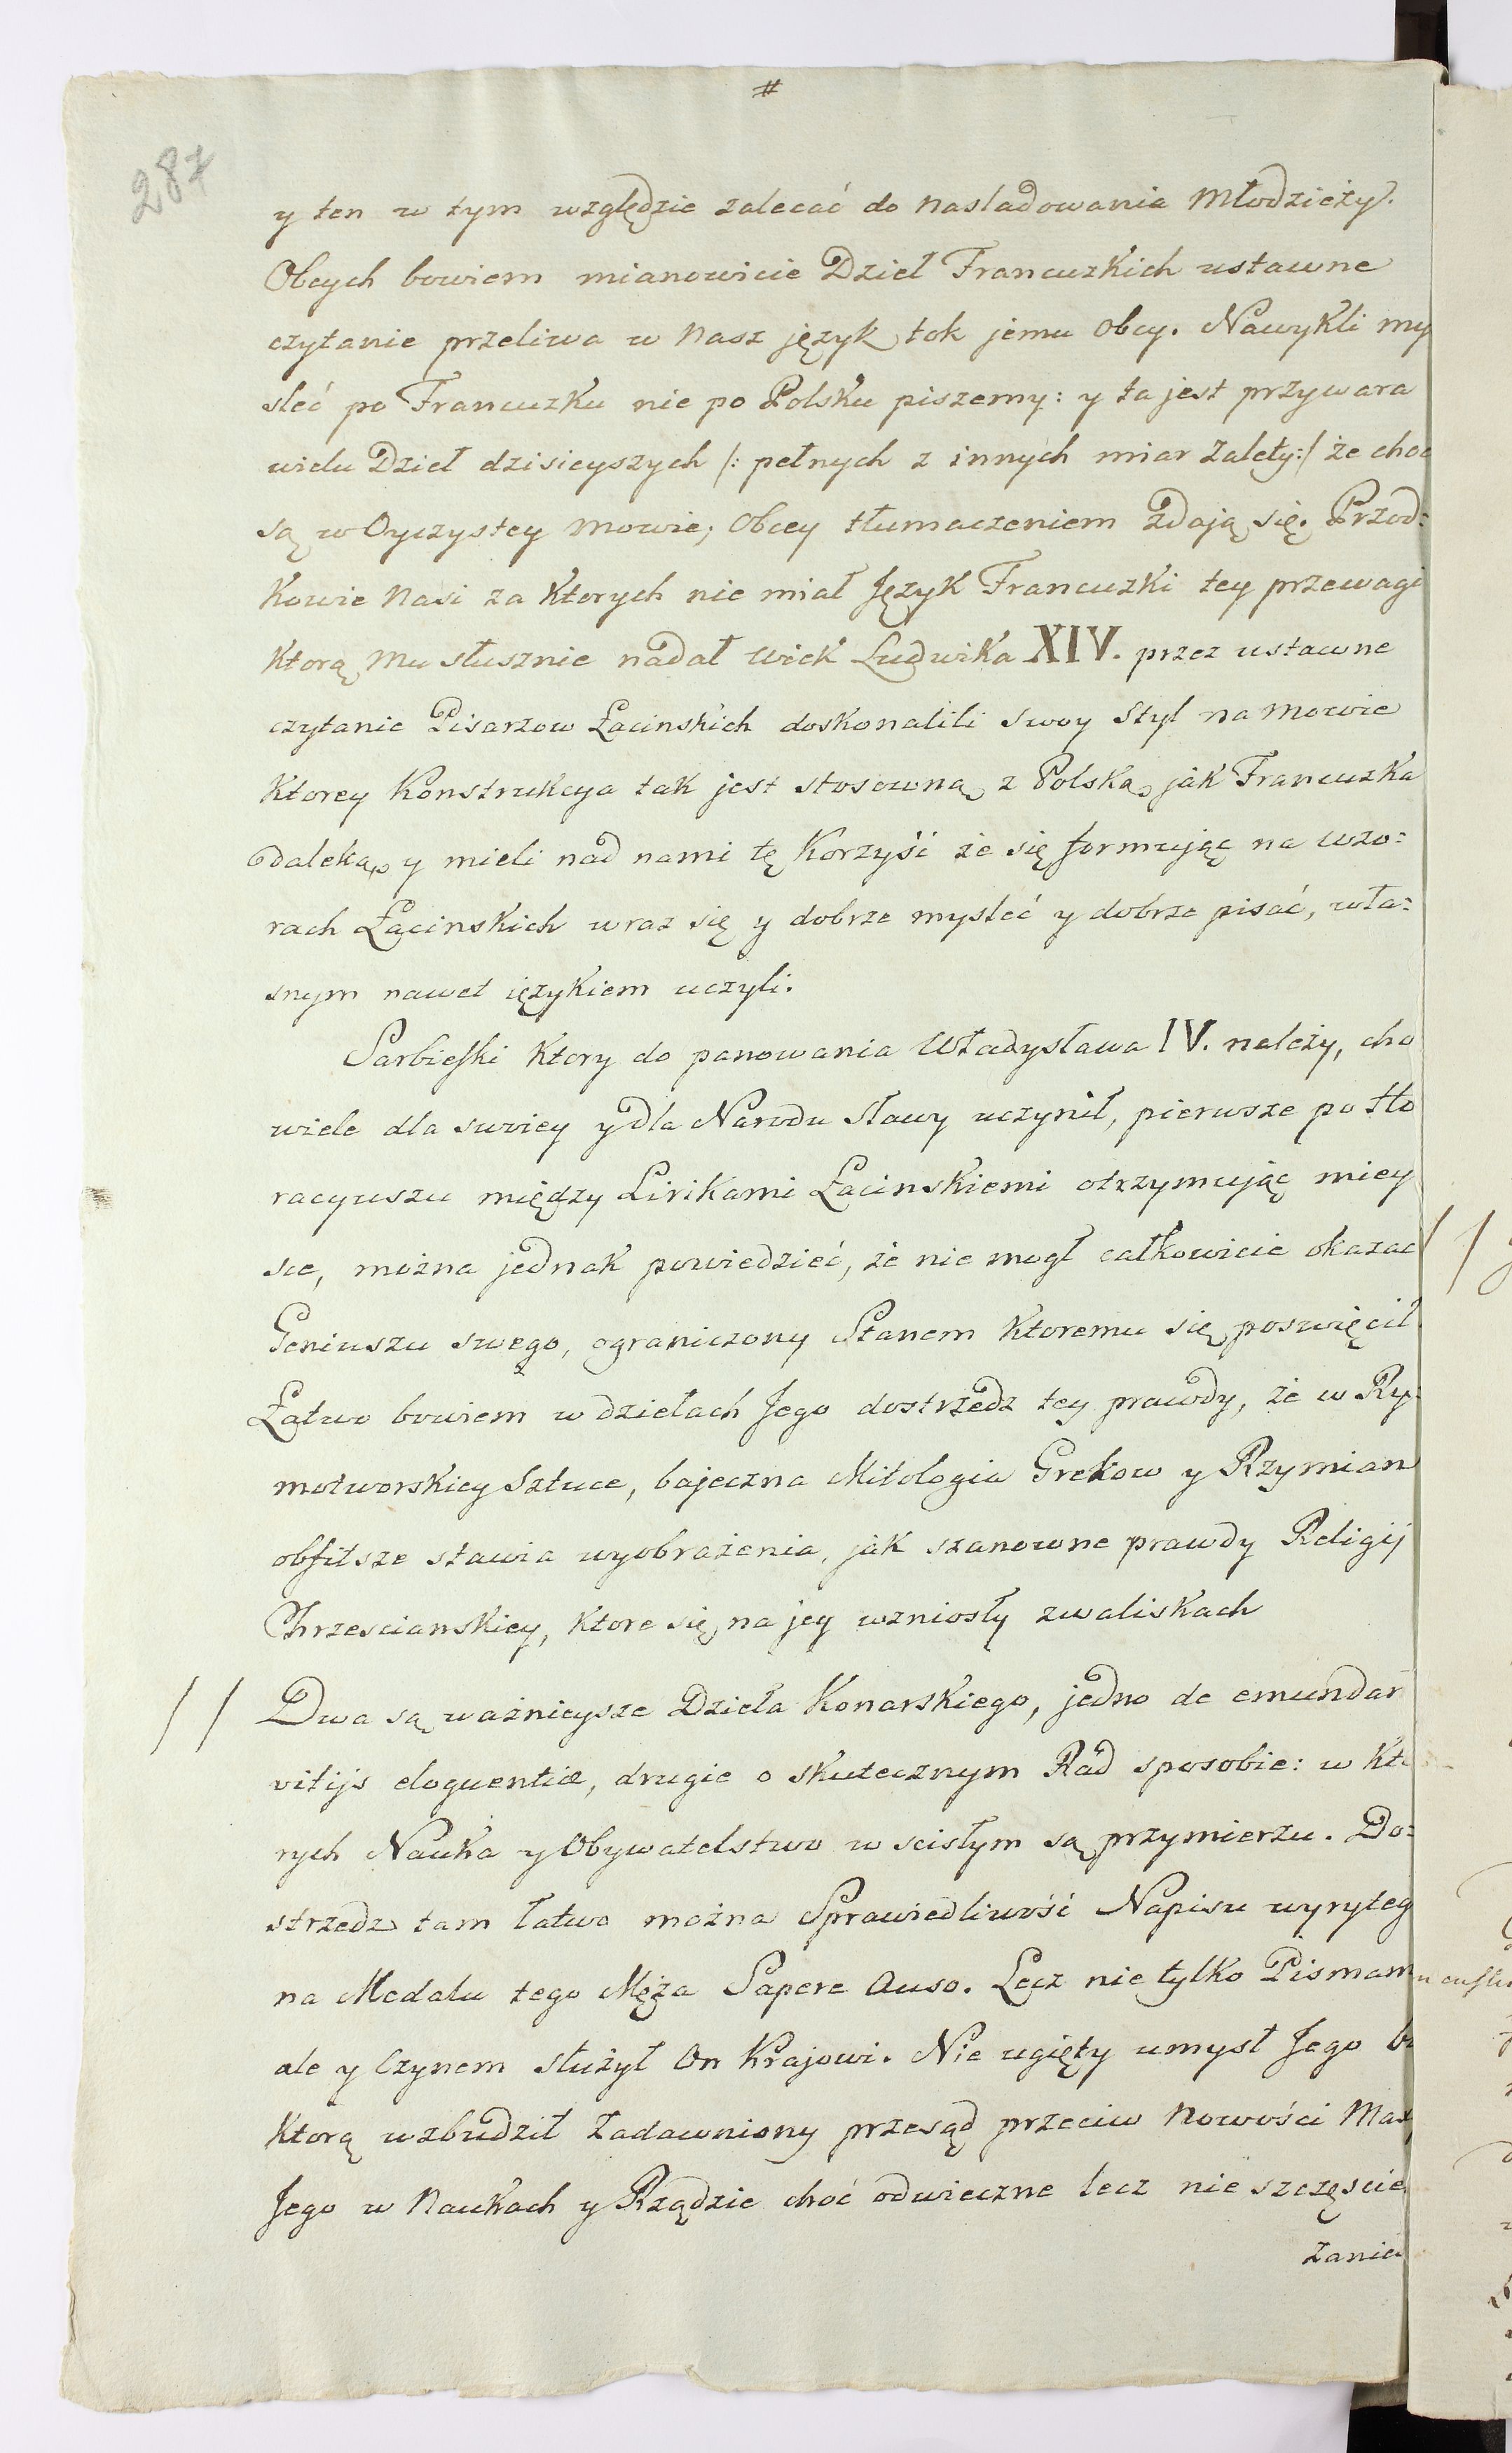 #
287
y ten w tym względzie zalecać do nasladowania Młodzieży.
Obcych bowiem mianowicie Dzieł Francuzkich ustawne
czytanie przeliwa w nasz język tok jemu obcy. Nawykli my
sleć po Francuzku nie po Polsku piszemy: y ta jest przywara
wielu Dzieł dzisieyszych /: pełnych z innych miar zalety :/ że choc
są w Oyczystey mowie, obcey tłumaczeniem zdają się. Przod=
kowie nasi za ktorych nie miał Język Francuzki tey przewagi
ktorą mu słusznie nadał wiek Ludwika XIV. przez ustawne
czytanie Pisarzow Łacinskich doskonalili swoy styl na mowie
ktorey Konstrukcya tak jest stosowną z Polską, jak Francuzka
daleką, y mieli nad nami tę korzyść że się formując na wzo=
rach Łacinskich wraz się y dobrze mysleć y dobrze pisać, wła=
snym nawet językiem uczyli.
Sarbieski ktory do panowania Władysława IV. należy, cho
wiele dla swoiey y dla Narodu sławy uczynił, pierwsze po Ho
racyuszu między Lirikami Łacinskiemi otrzymując miey
sce, można jednak powiedzieć, że nie mogł całkowicie okazac
Geniuszu swego, ograniczony Stanem ktoremu się poswięcił
Łatwo bowiem w dziełach Jego dostrzedz tey prawdy, że w Ry
motworskiey sztuce, bajeczna Mitologia Grekow y Rzymian
obfitsze stawia wyobrażenia, jak szanowne prawdy Religij
Chrzescianskiey, ktore się na jey wzniosły zwaliskach
// Dwa są ważnieysze Dzieła Konarskiego, jedno de emundan
vitijs eloquentiæ, drugie o skutecznym Rad sposobie: w kto
rych Nauka y Obywatelstwo w scisłym są przymierzu. Do=
strzedz tam łatwo można Sprawiedliwość Napisu wyryteg
na Medalu tego Męża Sapere Auso. Lecz nie tylko Pismam
ale y Czynem służył on Krajowi. Nie ugięty umysł Jego b
ktorą wzbudził zadawniony przesąd przeciw nowości Max
Jego w naukach y Rządzie choć odwieczne lecz nie szczęscie
zanie